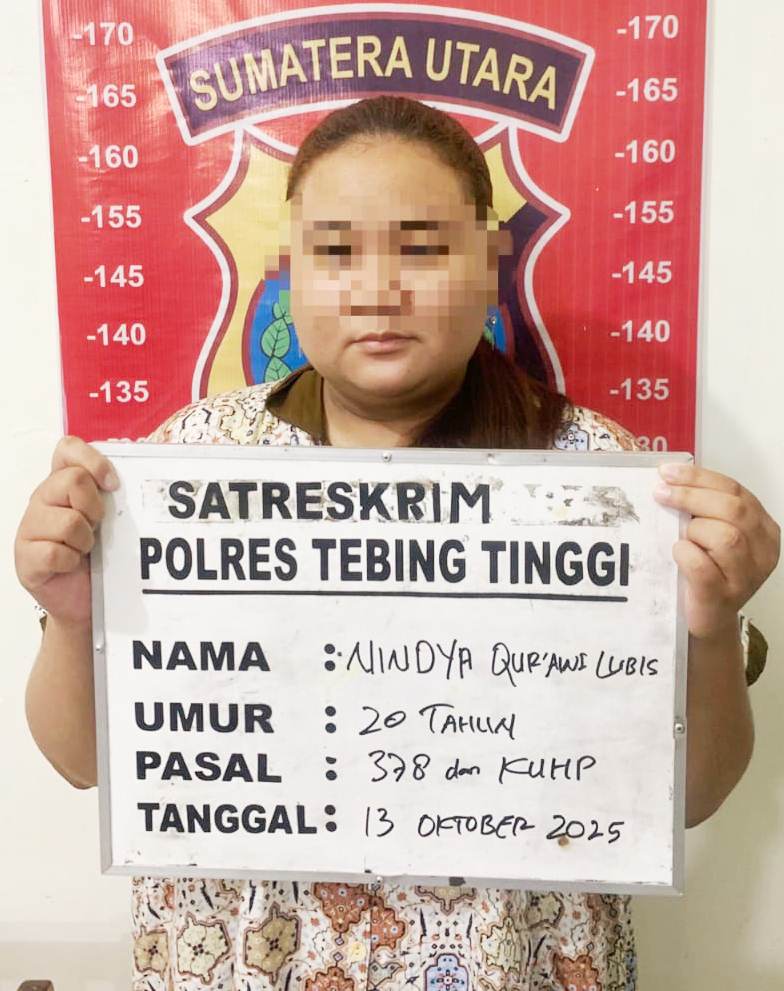 SUMATERA UTARA
-170 -170
-165 -165
-160 -160
-155 -155
-145 -145
-140 -140
-135 -135
30
SATRESKRIM
POLRES TEBING TINGGI
NAMA : NINDYA QUR'AWI LUBIS
UMUR : 20 TAHUN
PASAL : 378 dan KUHP
TANGGAL : 13 OKTOBER 2025